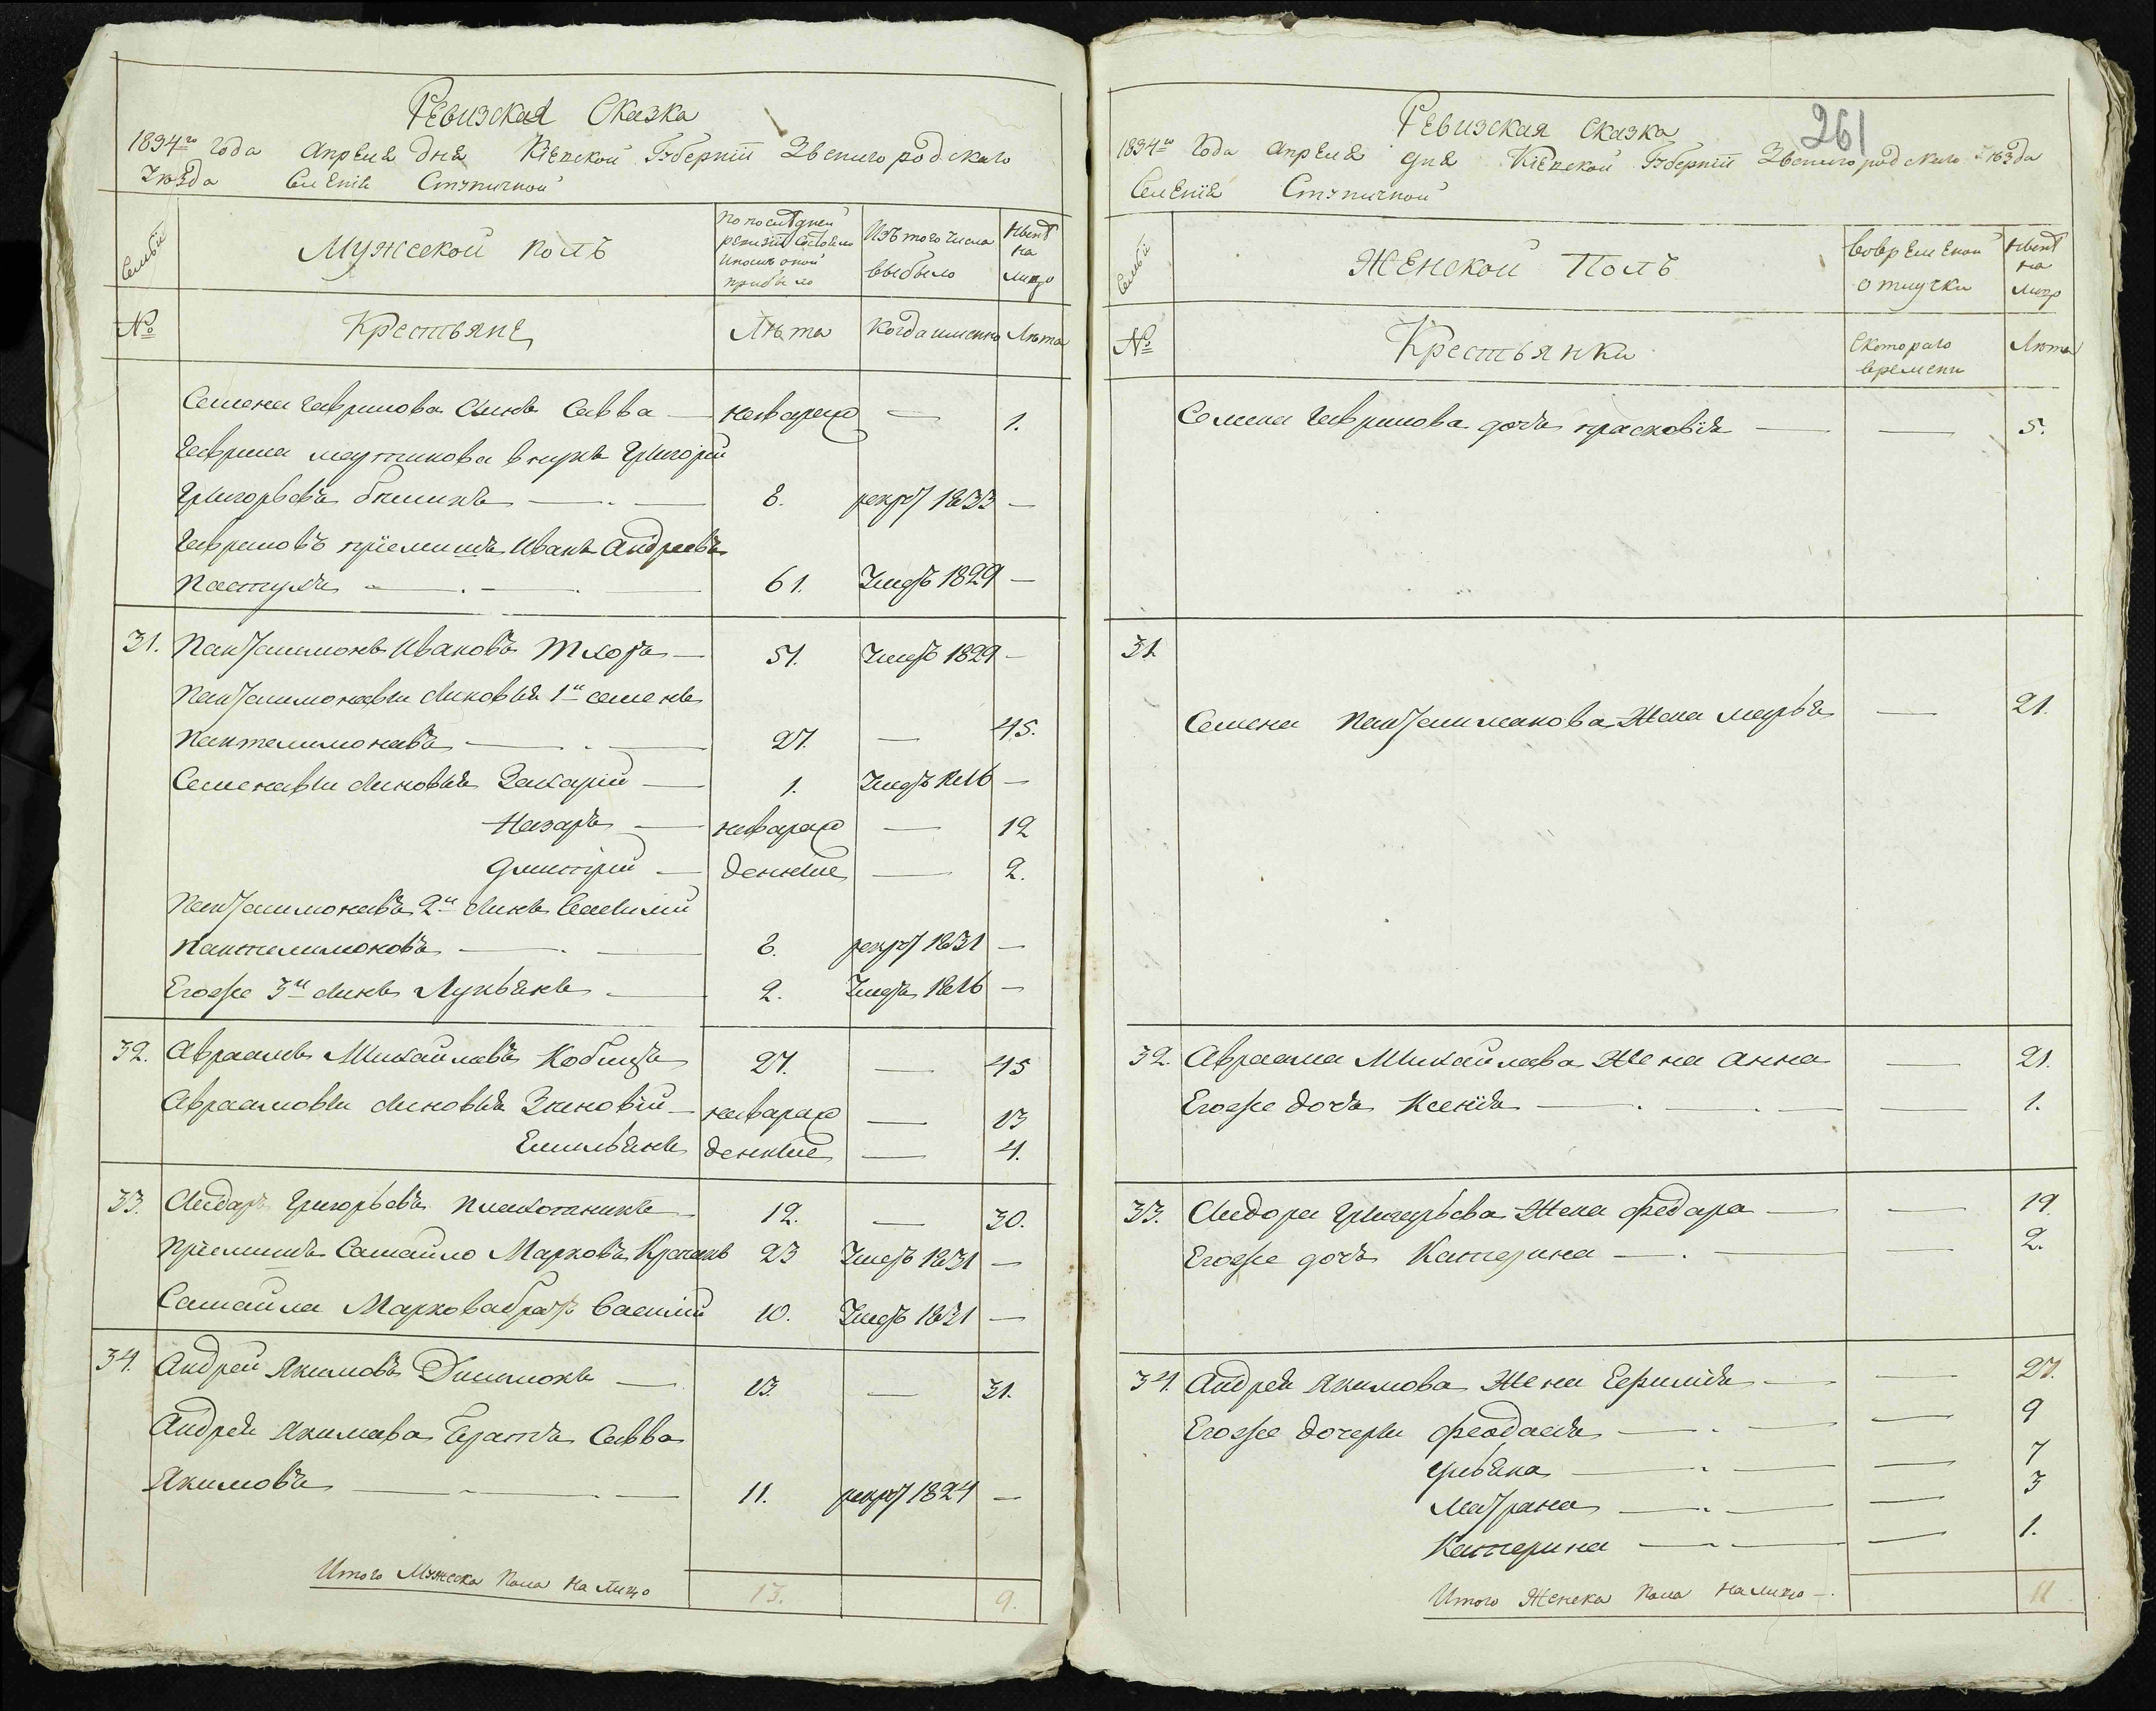 Ревизская Сказка
1834го года Апреля дня Кіевской Губерніи Звенигородскаго
Уезда Селенія Ступичной
Семьи
Мужеской полъ
По последней ревизіи состояло и после оной прибыло
Изъ того числа выбыло
Ныне на лицо
№
Крестьяне
Лета
Когда именно
Лета
Семена Гаврилова Сынъ Савва — новорож — 1.
Гаврила Мартинова внукъ Григорій
Григорьевъ — 8. рекрут 1833 —
Гавриловъ пріемишъ Иванъ Андреевъ
Пастухъ — 61. Умеръ 1829 —
31. Пантелимонъ Ивановъ Тхоръ — 51. Умеръ 1829 —
Пантелимоновы сыновья 1й Семенъ
Пантелимоновъ — 27. — 45.
Семеновы сыновья Захарій — 1. Умеръ 1816 —
Назаръ — новорож — 12
Дмитрій — денные — 2.
Пантелимоновъ 2й сынъ Василій
Пантелимоновъ — 8. рекрут 1831 —
Егоже 3й сынъ Лукьянъ — 2. Умеръ 1816 —
32. Авраамъ Михайловъ Кобицъ 27. — 45
Авраамовы сыновья Зиновій — новорож — 13
Емильянъ денные — 4.
33. Сидоръ Григорьевъ Плахотникъ — 12. — 30.
Пріемишъ Самайло Марковъ 23 Умеръ 1831 —
Самайла Маркова братъ Василій 10. Умеръ 1831 —
34. Андрей Якимовъ — 13. — 31.
Андрея Якимова Братъ Савва
Якимовъ — 11. рекрут 1824 —
Итого Мужеска Пола На Лицо 13. 9.
261
Ревизская Сказка
1834го Года Апреля дня Кіевской Губерніи Звенигородскаго Уезда
Селенія Ступичной
Семьи
Женской Полъ
Вовременной отлучки
Ныне на лицо
№
Крестьянки
Скотораго времени
Лета
Семена Гаврилова дочь прасковія — — 5.
31.
Семена Пантелимонова Жена Марья — 21.
32. Авраама Михайлова Жена Анна — 21.
Егоже дочь Ксенія — — 1.
33. Сидора Григорьева Жена Федора — — 19.
Егоже дочь Катерина — — 2.
34. Андрея Якимова Жена Ефимія — — 27.
Егоже дочери Феодосія — — 9
Ульяна — — 7
Матрона — — 3
Катерина — — 1.
Итого Женска Пола Налицо — 11